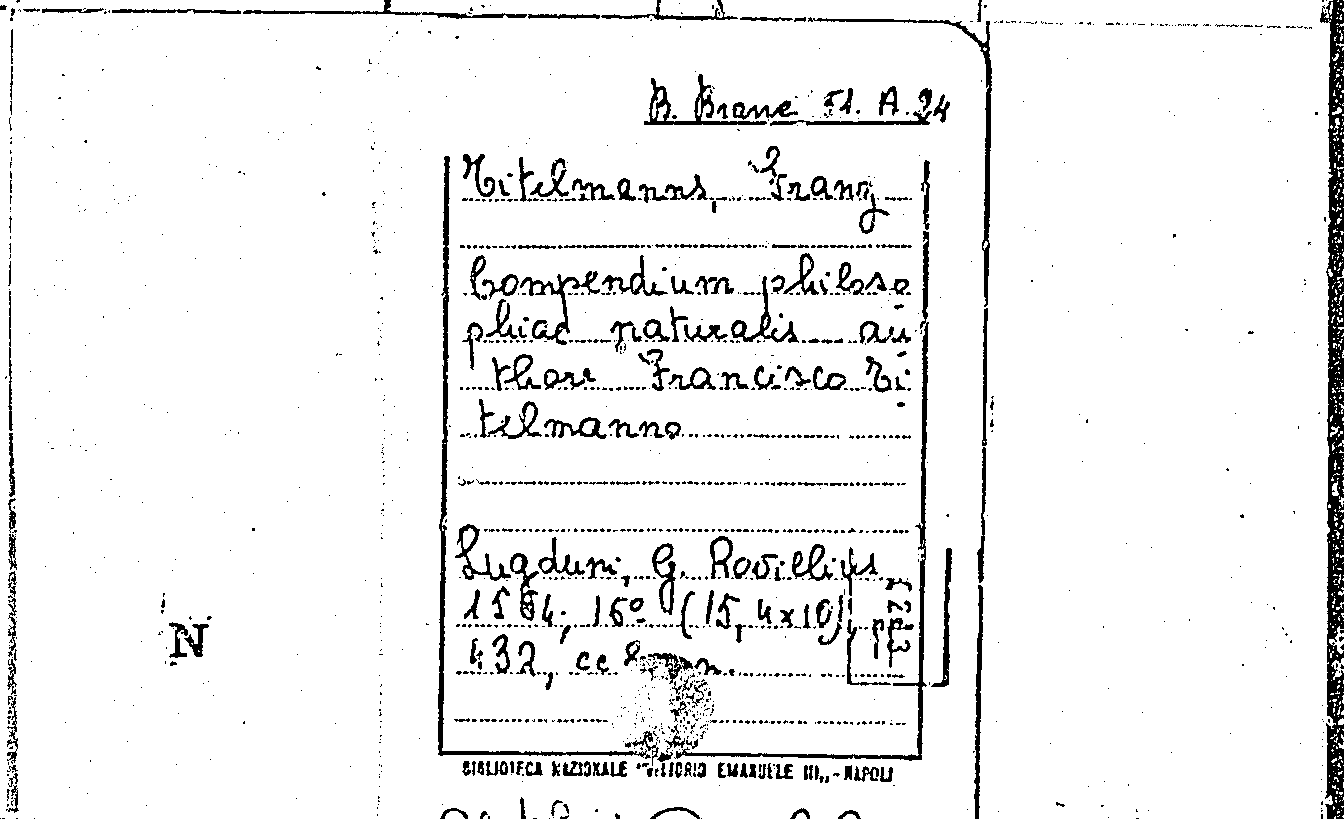 B. Branc 51. A. 24
Titelmanns, Franz
Compendium philoso
phiae naturalis au
thore Francisco Ti
telmanno
Lugduni, G. Rovillius,
1564; 16° (15,4x10),
432, cc
N
BIBLIOTECA NAZIONALE "VITTORIO EMANUELE III„ - NAPOLI